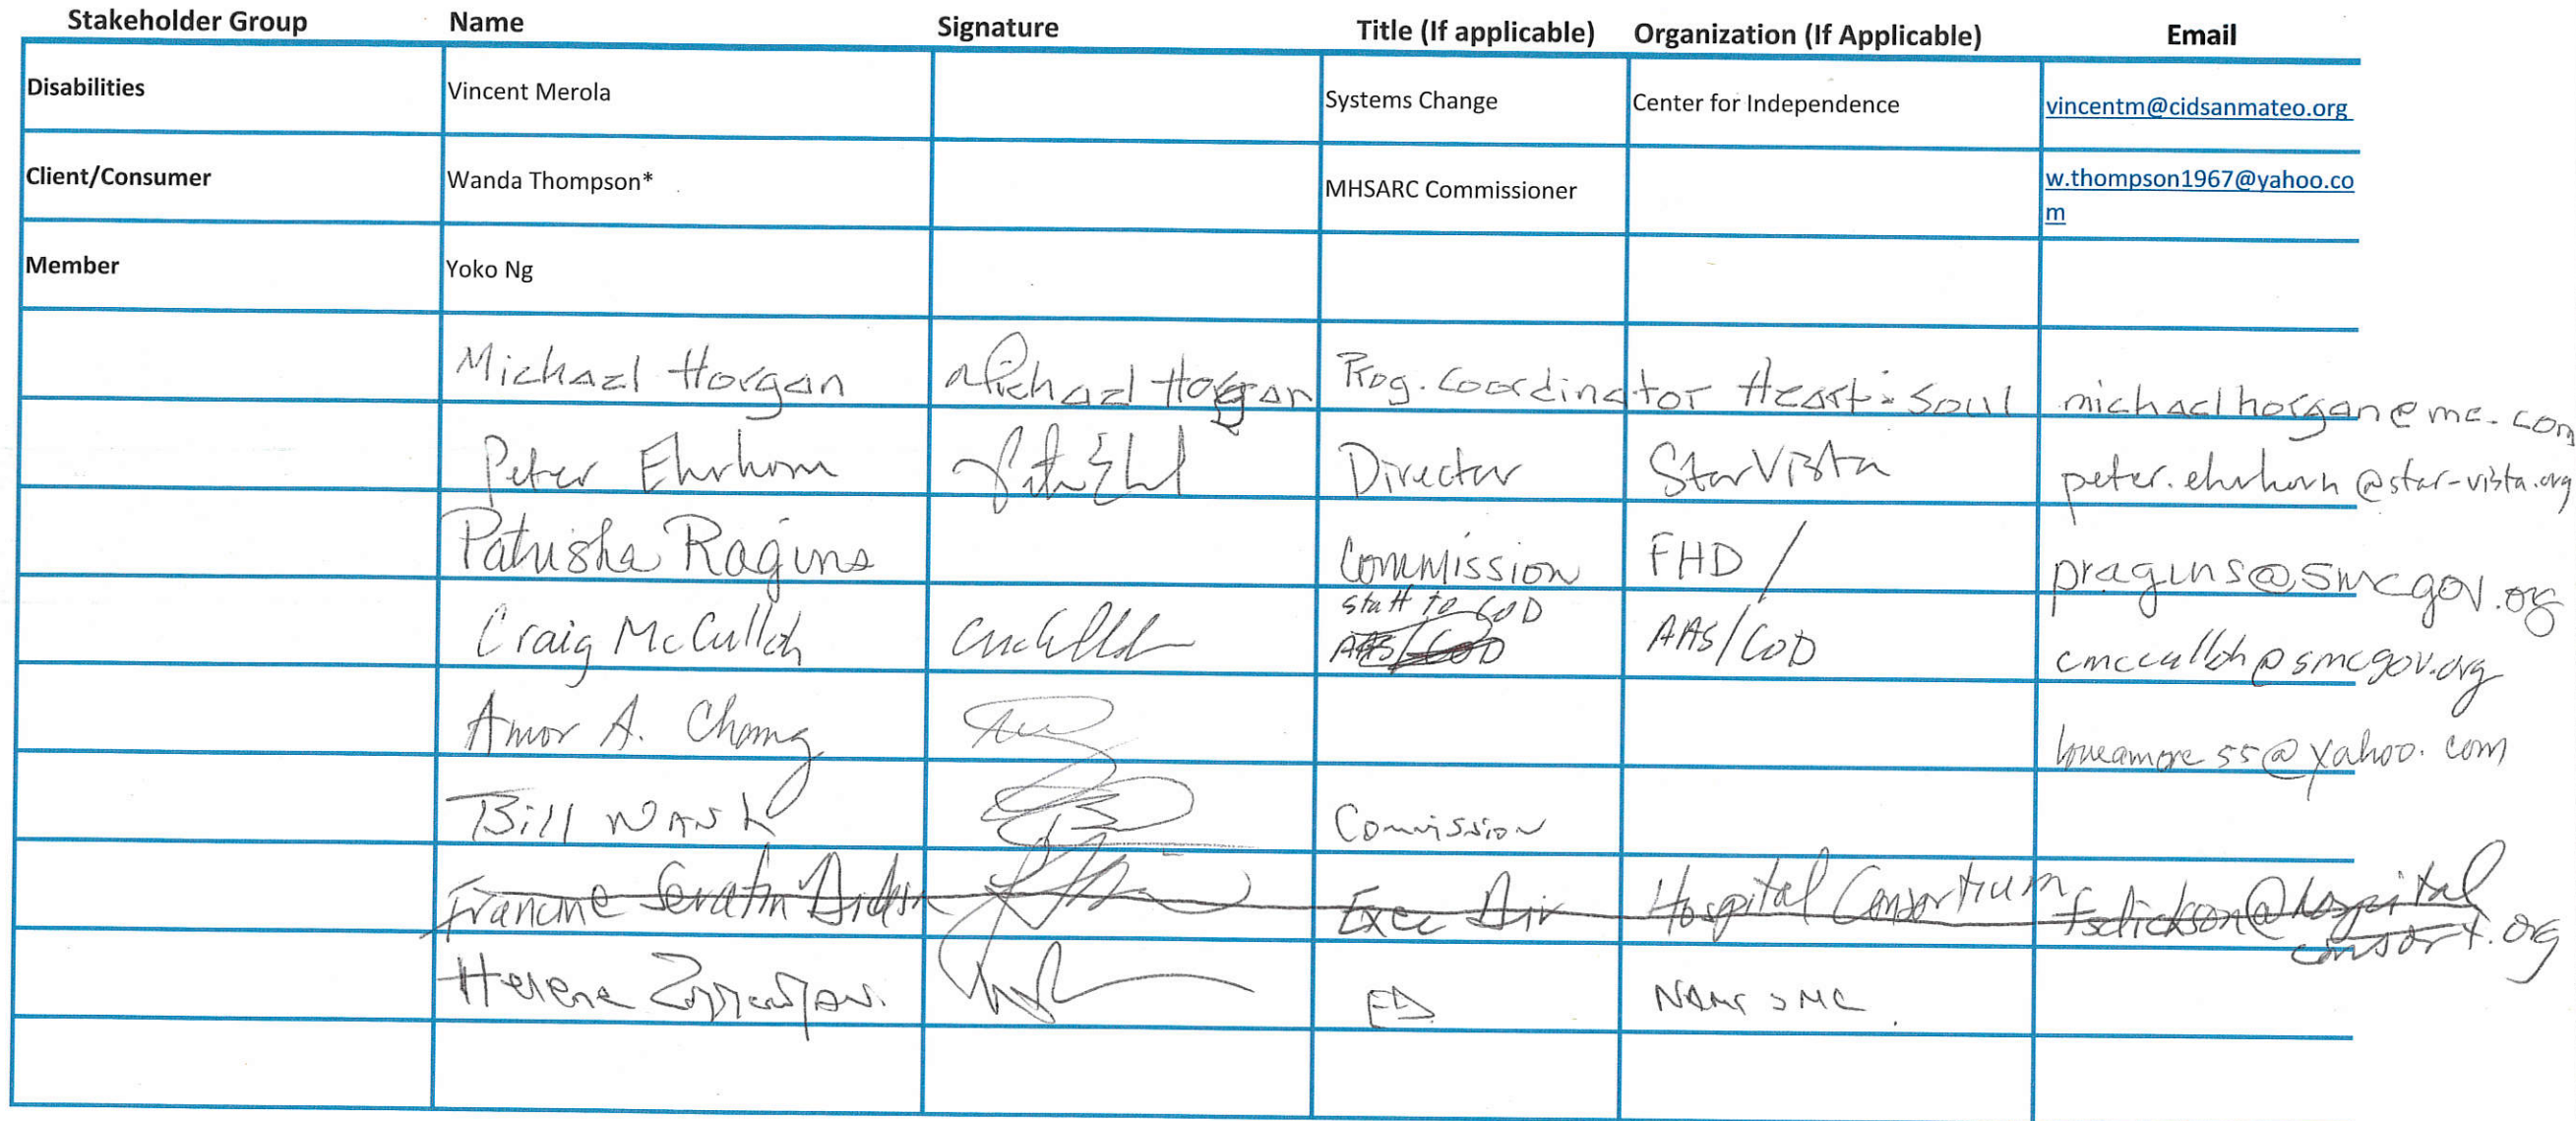 Stakeholder Group Name Signature Title (If applicable) Organization (If Applicable) Email
Disabilities Vincent Merola Systems Change Center for Independence vincentm@cidsanmateo.org
Client/Consumer Wanda Thompson* MHSARC Commissioner w.thompson1967@yahoo.co
m
Member Yoko Ng
Michael Horgan Michael Horgan Prog. Coordinator Heart & Soul michaelhorgan@me.com
Peter Ehrhorn Director StarVista peter.ehrhorn@star-vista.org
Patrisha Ragins Commission FHD/ pragins@smcgov.org
Craig McCulloh staff to COD AAS/COD AAS/COD cmcculloh@smcgov.org
Amor A. Chomg
Bill Nash Commission
Francine Serafin Dickson Exec Dir Hospital Consortium fsdickson@hospital
consort.org
Helene ED NAMI SMC